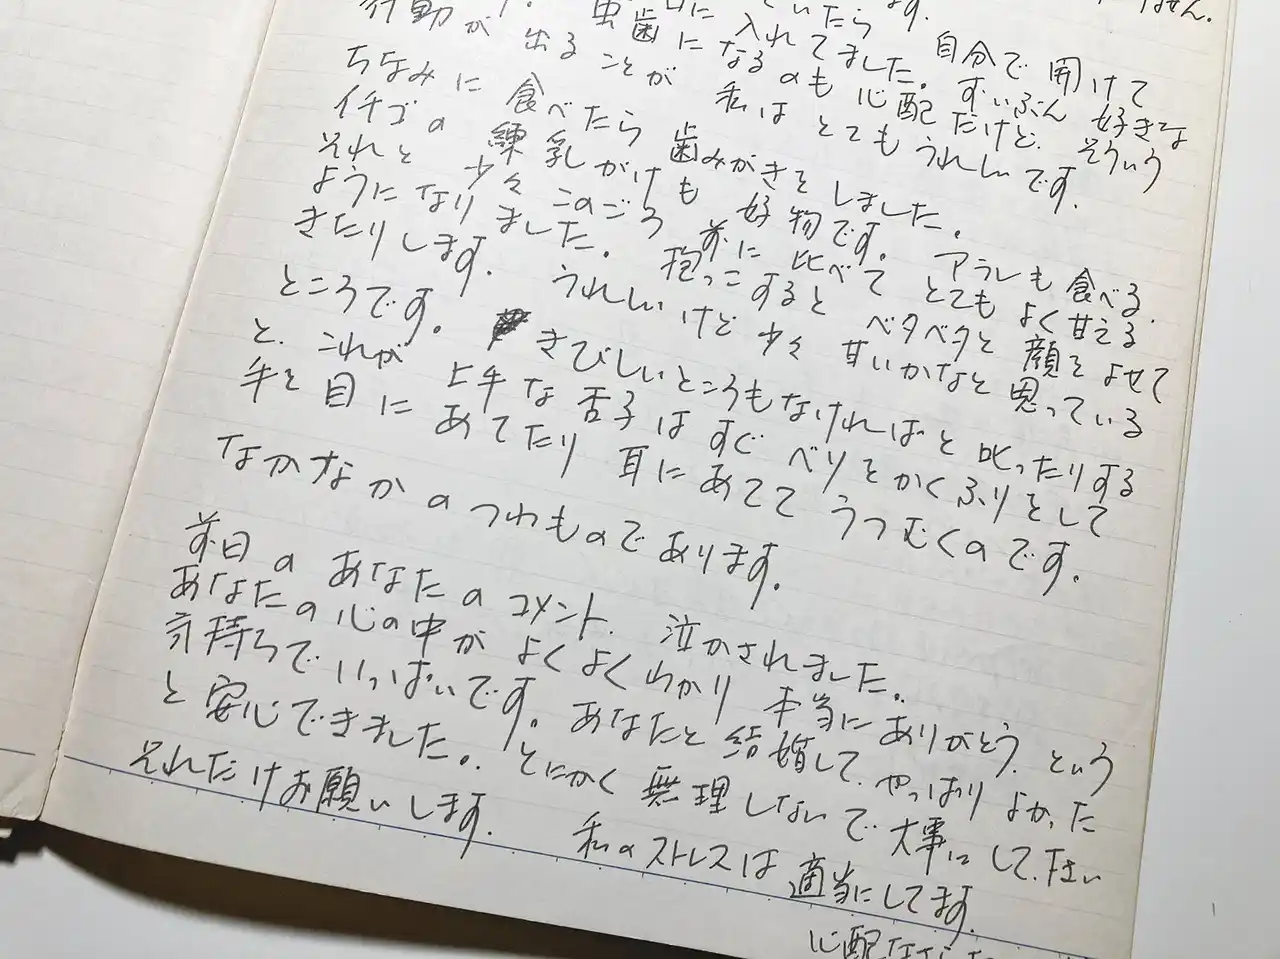 ません。
ていたら 自分で開けて
口に入れてました。ずいぶん好きな
虫歯になるのも心配だけど、そういう
行動が出ることが私はとてもうれしいです。
ちなみに食べたら歯みがきをしました。
イチゴの練乳がけも好物です。アラレも食べる。
それと少々このごろ前に比べてとてもよく甘える
ようになりました。抱っこするとベタベタと顔をよせて
きたりします。うれしいけど少々甘いかなと思っている
ところです。きびしいところもなければと叱ったりする
と、これが上手な舌子はすぐベソをかくふりをして
手を目にあてたり耳にあててうつむくのです。
なかなかのつわものであります。
前日のあなたのコメント、泣かされました。
あなたの心の中がよくよくわかり本当にありがとう、という
気持ちでいっぱいです。あなたと結婚して、やっぱりよかった
と安心できました。とにかく無理しないで大事にして下さい
それだけお願いします。私のストレスは適当にしてます。
心配なさらな